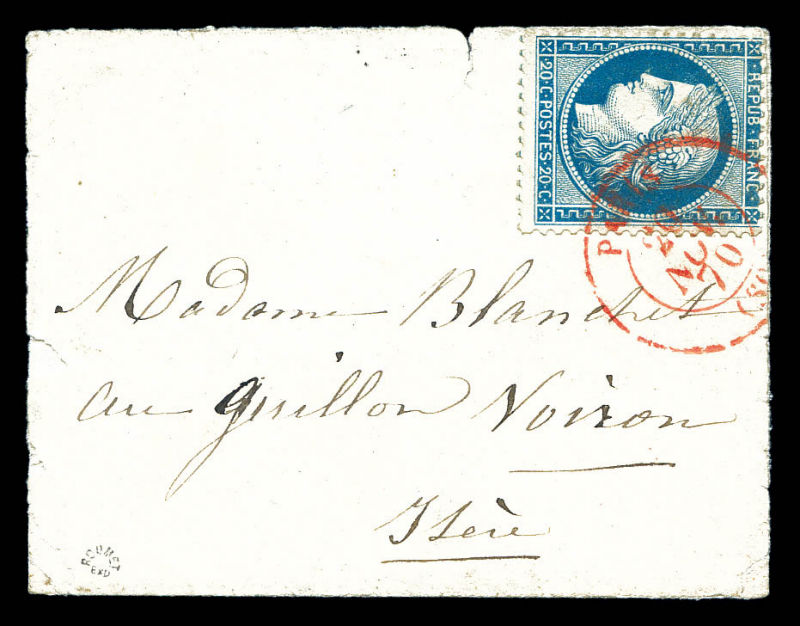 REPUB. FRANC.
20 · C · POSTES · 20 · C
PARIS
70
Madame Blanchet
au guillon Voiron
Isère
ROUMET
EXP